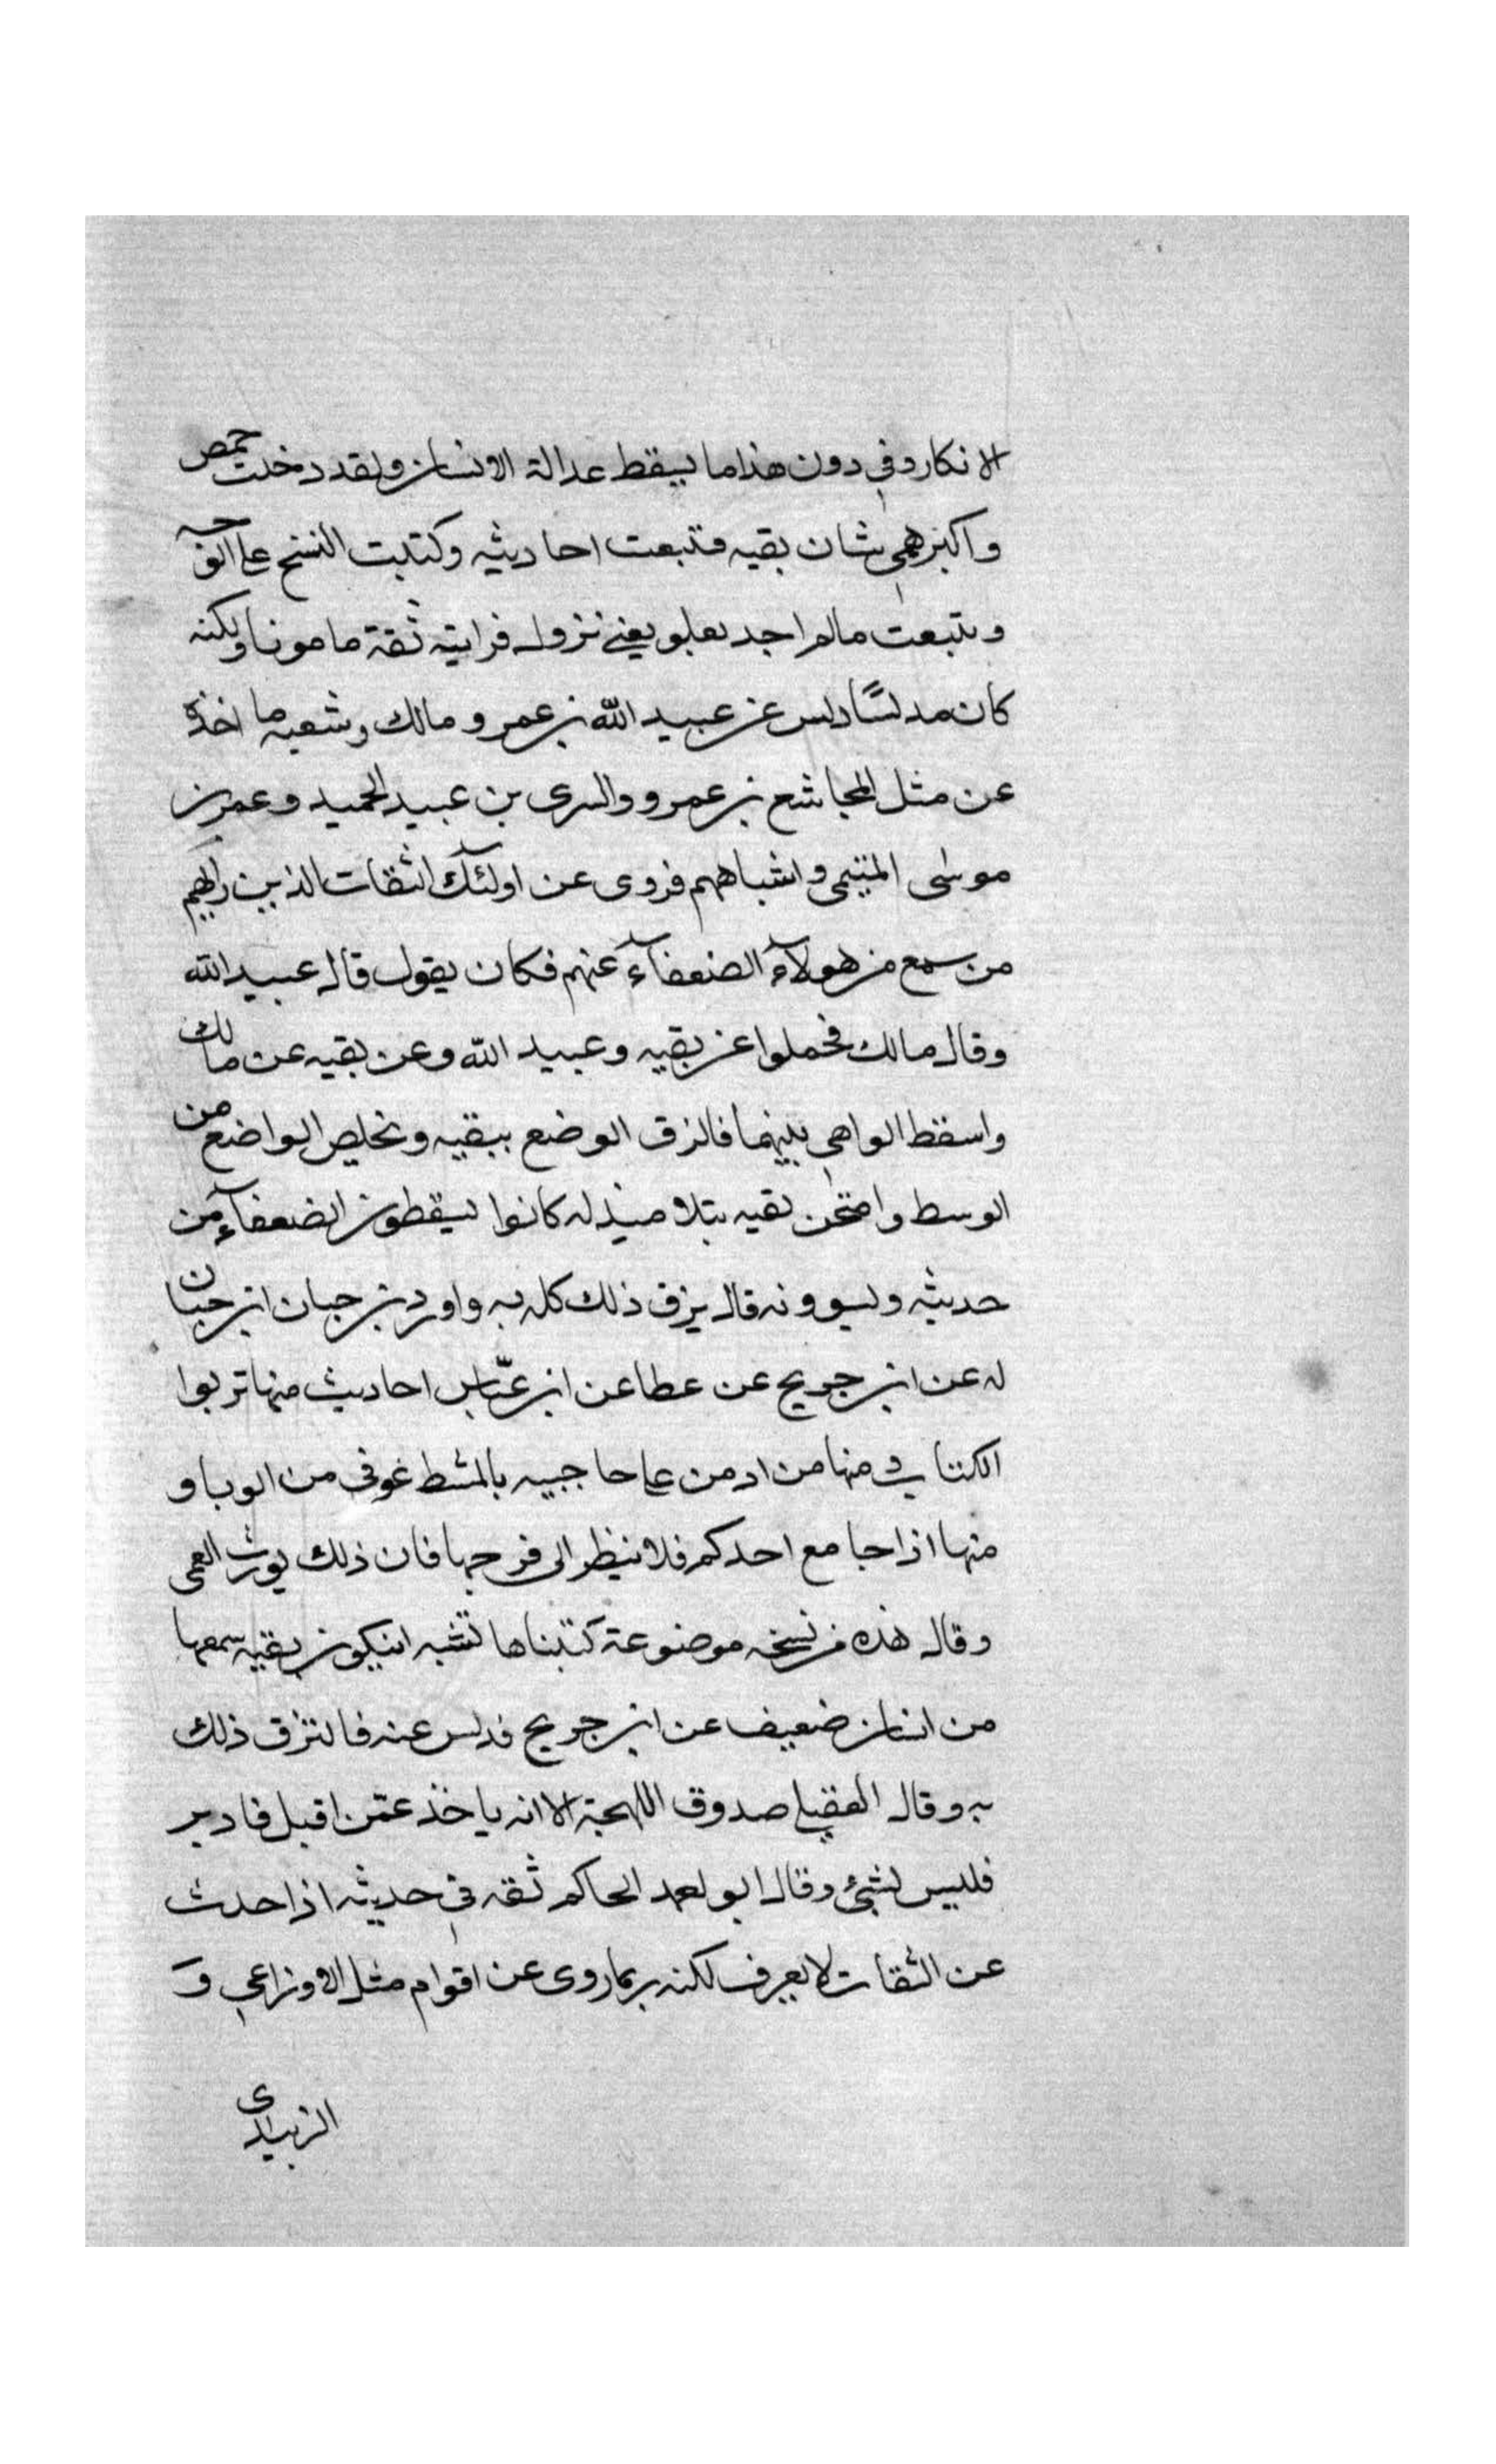 الانكار وفي دون هذا ما يسقط عدالة الانسان ولقد دخلت حمص
واكبر همي شان بقيه فتبعت احاديثه وكتبت النسخ على الوجه
وتتبعت مالم اجد بعلو يعني نزول فرايته ثقة مامونا ولكنه
كان مدلسًا دلس عن عبيد الله بن عمر و مالك وشعبه ما اخذه
عن مثل المجاشع بن عمرو والسرى بن عبيد الحميد وعمر بن
موسى المتيمى واشباههم فروى عن اولئك الثقات الذين رايهم
من سمع من هولآء الضعفآء عنهم فكان يقول قال عبيد الله
وقال مالك فحملوا عن بقيه وعبيد الله وعن بقيه عن مالك
واسقط الواهي بينهما فالزق الوضع ببقيه وتخلص الواضع من
الوسط وامتحن بقيه بتلاميذ له كانوا يسقطون الضعفآء من
حديثه ويسوونه قال يزق ذلك كله به واورد بن حبان ابن حبان
له عن ابن جريج عن عطا عن ابن عبّاس احاديث منها تربوا
الكتاب ومنها من ادمن على حاجبيه بالمشط عوفى من الوبا و
منها اذا جامع احدكم فلا ينظر الى فرجها فان ذلك يورث العمى
وقال هذه من نسخه موضوعة كتبناها تشبه ان يكون بقيه سمعها
من انسان ضعيف عن ابن جريج فدلس عنه فالتزق ذلك
به وقال العقيلي صدوق اللهجة الا انه ياخذ عمّن اقبل فادبر
فليس بشئ وقال ابو احمد الحاكم ثقه في حديثه اذا حدث
عن الثقات لا يعرف لكنه ربما روى عن اقوام مثل الاوزاعي و
الزبيدى